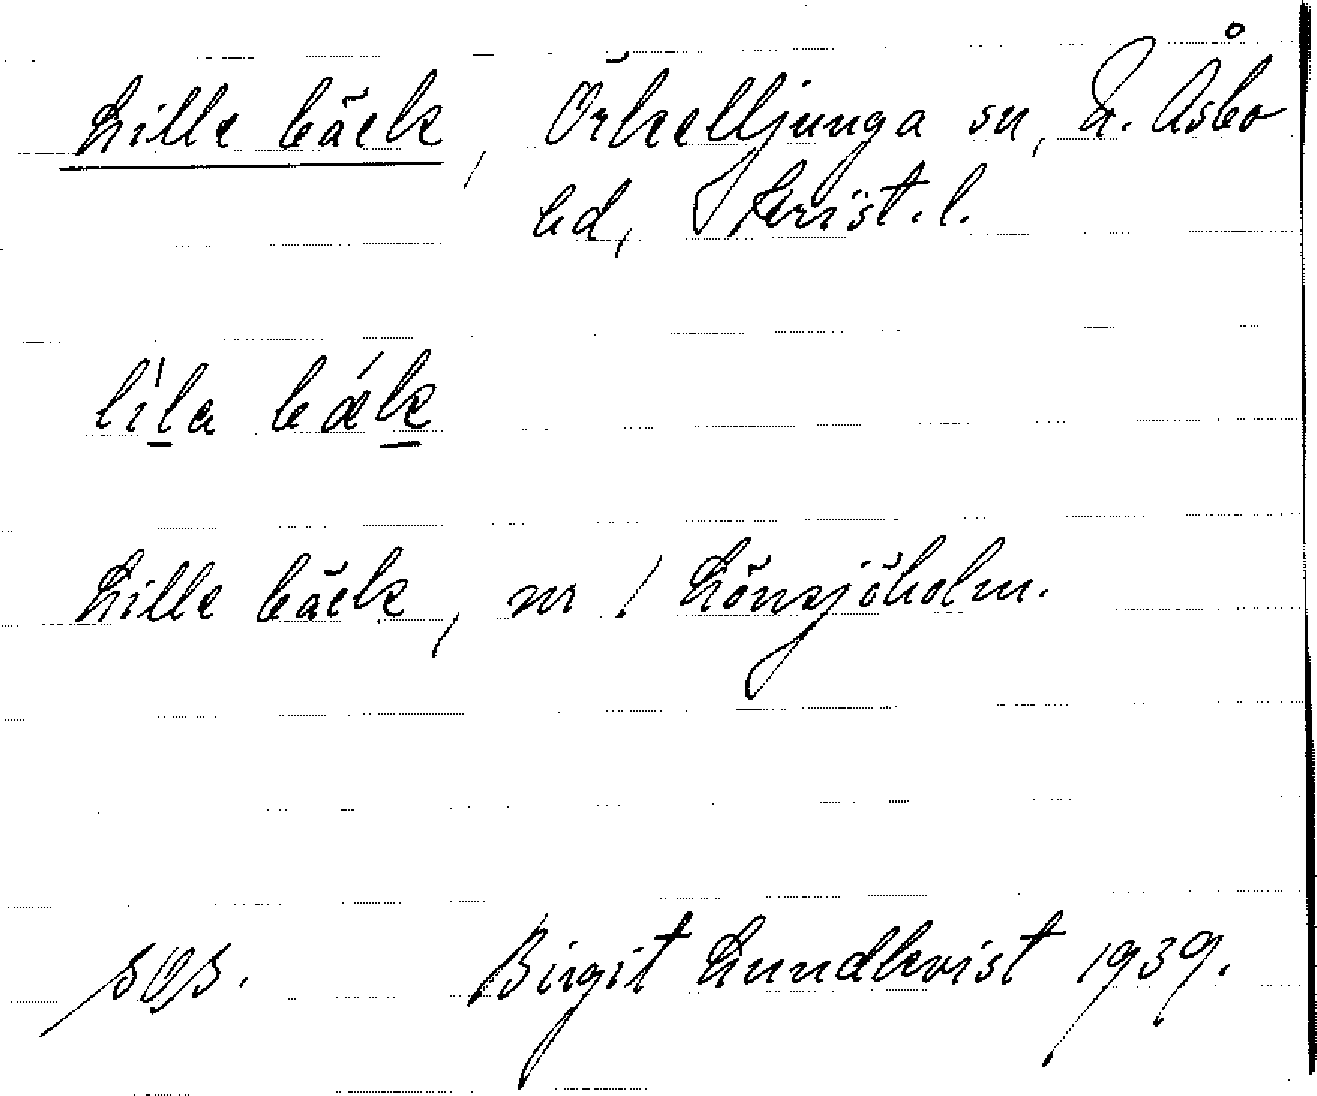 Lille bäck, Örkelljunga sn, N. Åsbo
hd, Krist. l.
lìla bǽk
Lille bäck, nr 1 Lönsjöholm.
sØs. Birgit Lundkvist 1939.